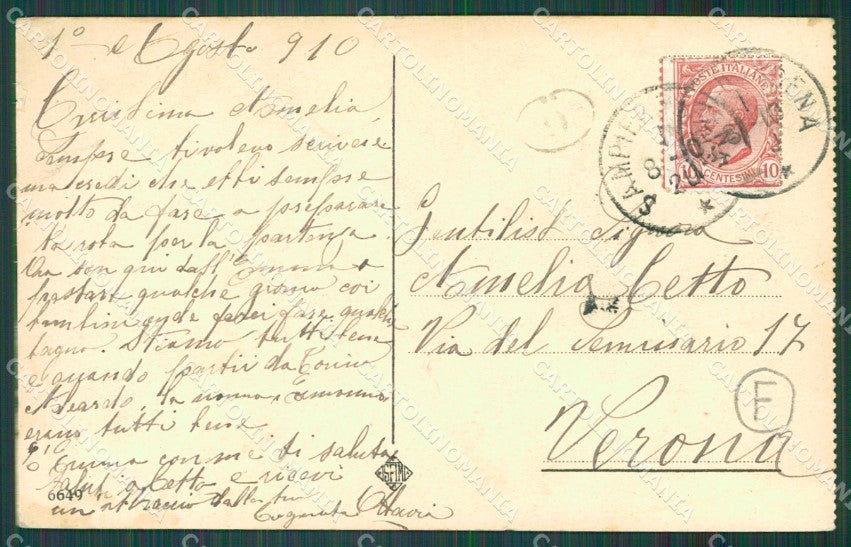 1° Agosto 910
Carissima Amelia
Sempre ti volevo scrivere
ma credi che ebbi sempre
molto da fare a preparare
la roba per la partenza.
Ora son qui dall'Emma a
passare qualche giorno coi
bambini fare qualche
bagno. Stiamo tutti bene
e quando partii da Torino
la nonna
erano tutti bene.
Emma con me ti saluta
saluta Cetto e ricevi
un abbraccio dalla tua
Cognata
6649
Gentilis Signora
Amelia Cetto
Via del Seminario 17
Verona
POSTE ITALIANE
CENTESIMI 10
SAMPIER
ENA
E
CARTOLINOMANIA